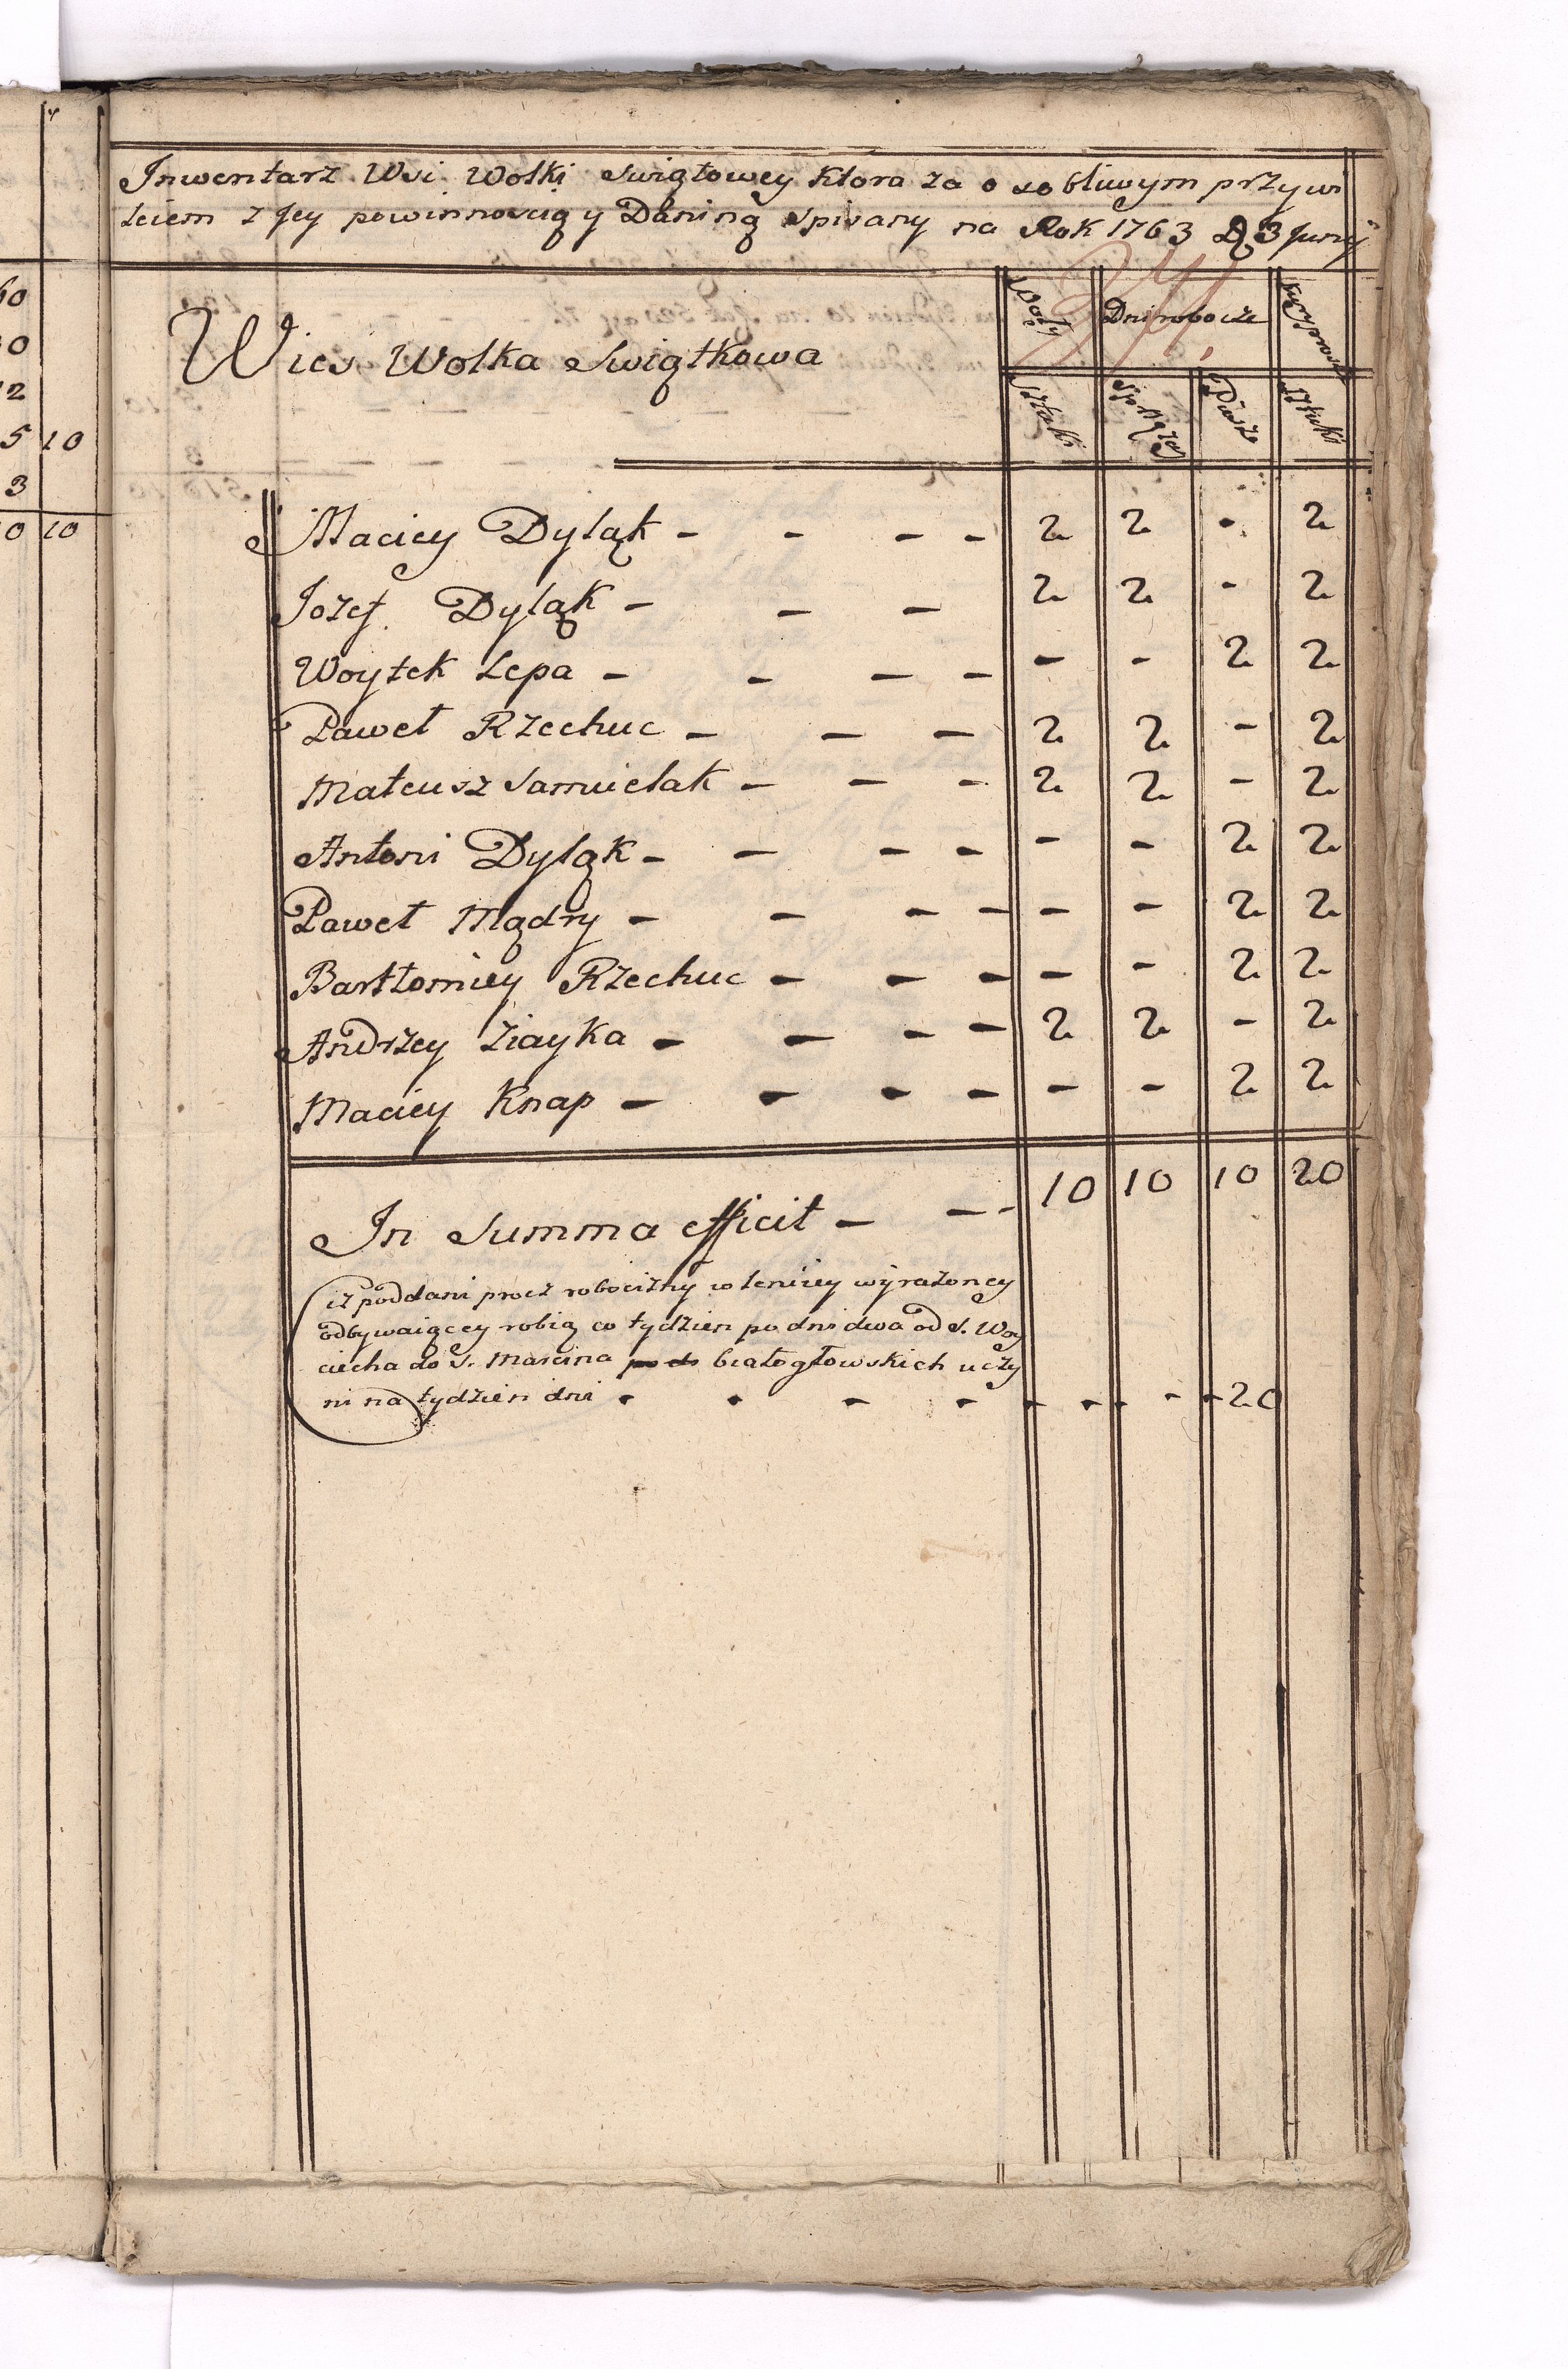 Inwentarz Wsi Wolki Swiątowey Ktora za osobliwym przywi
leiem z Jey powinnoscią y Daniną spisany na Rok 1763 D 3 Junij
24.
Wies Wolka Swiątkowa
Woły Dni robocze
sztuki Piesze sztuki
Maciey Dyląk - - - - 2 2 - 2
Jozef Dyląk - - - 2 2 - 2
Woytek Lepa - - - - - - 2 2
Paweł Rzechuc - - - 2 2 - 2
Mateusz Samielak - - - 2 2 - 2
Antoni Dyląk - - - - - - 2 2
Paweł Mądry - - - - - - 2 2
Bartłomiey Rzechuc - - - - - 2 2
Andrzey Ziayka - - - - 2 2 - 2
Maciey Knap - - - - - - 2 2
In Summa efficit - - - 10 10 10 20
ci poddani procz robocizny wyrazoney
odbywaiącey robią co tydzien po dni dwa od S. Woy
ciecha do S. Marcina białogłowskich uczy
ni na tydzien dni - - - - - - - - - 20
60
0
2
5 10
3
0 10